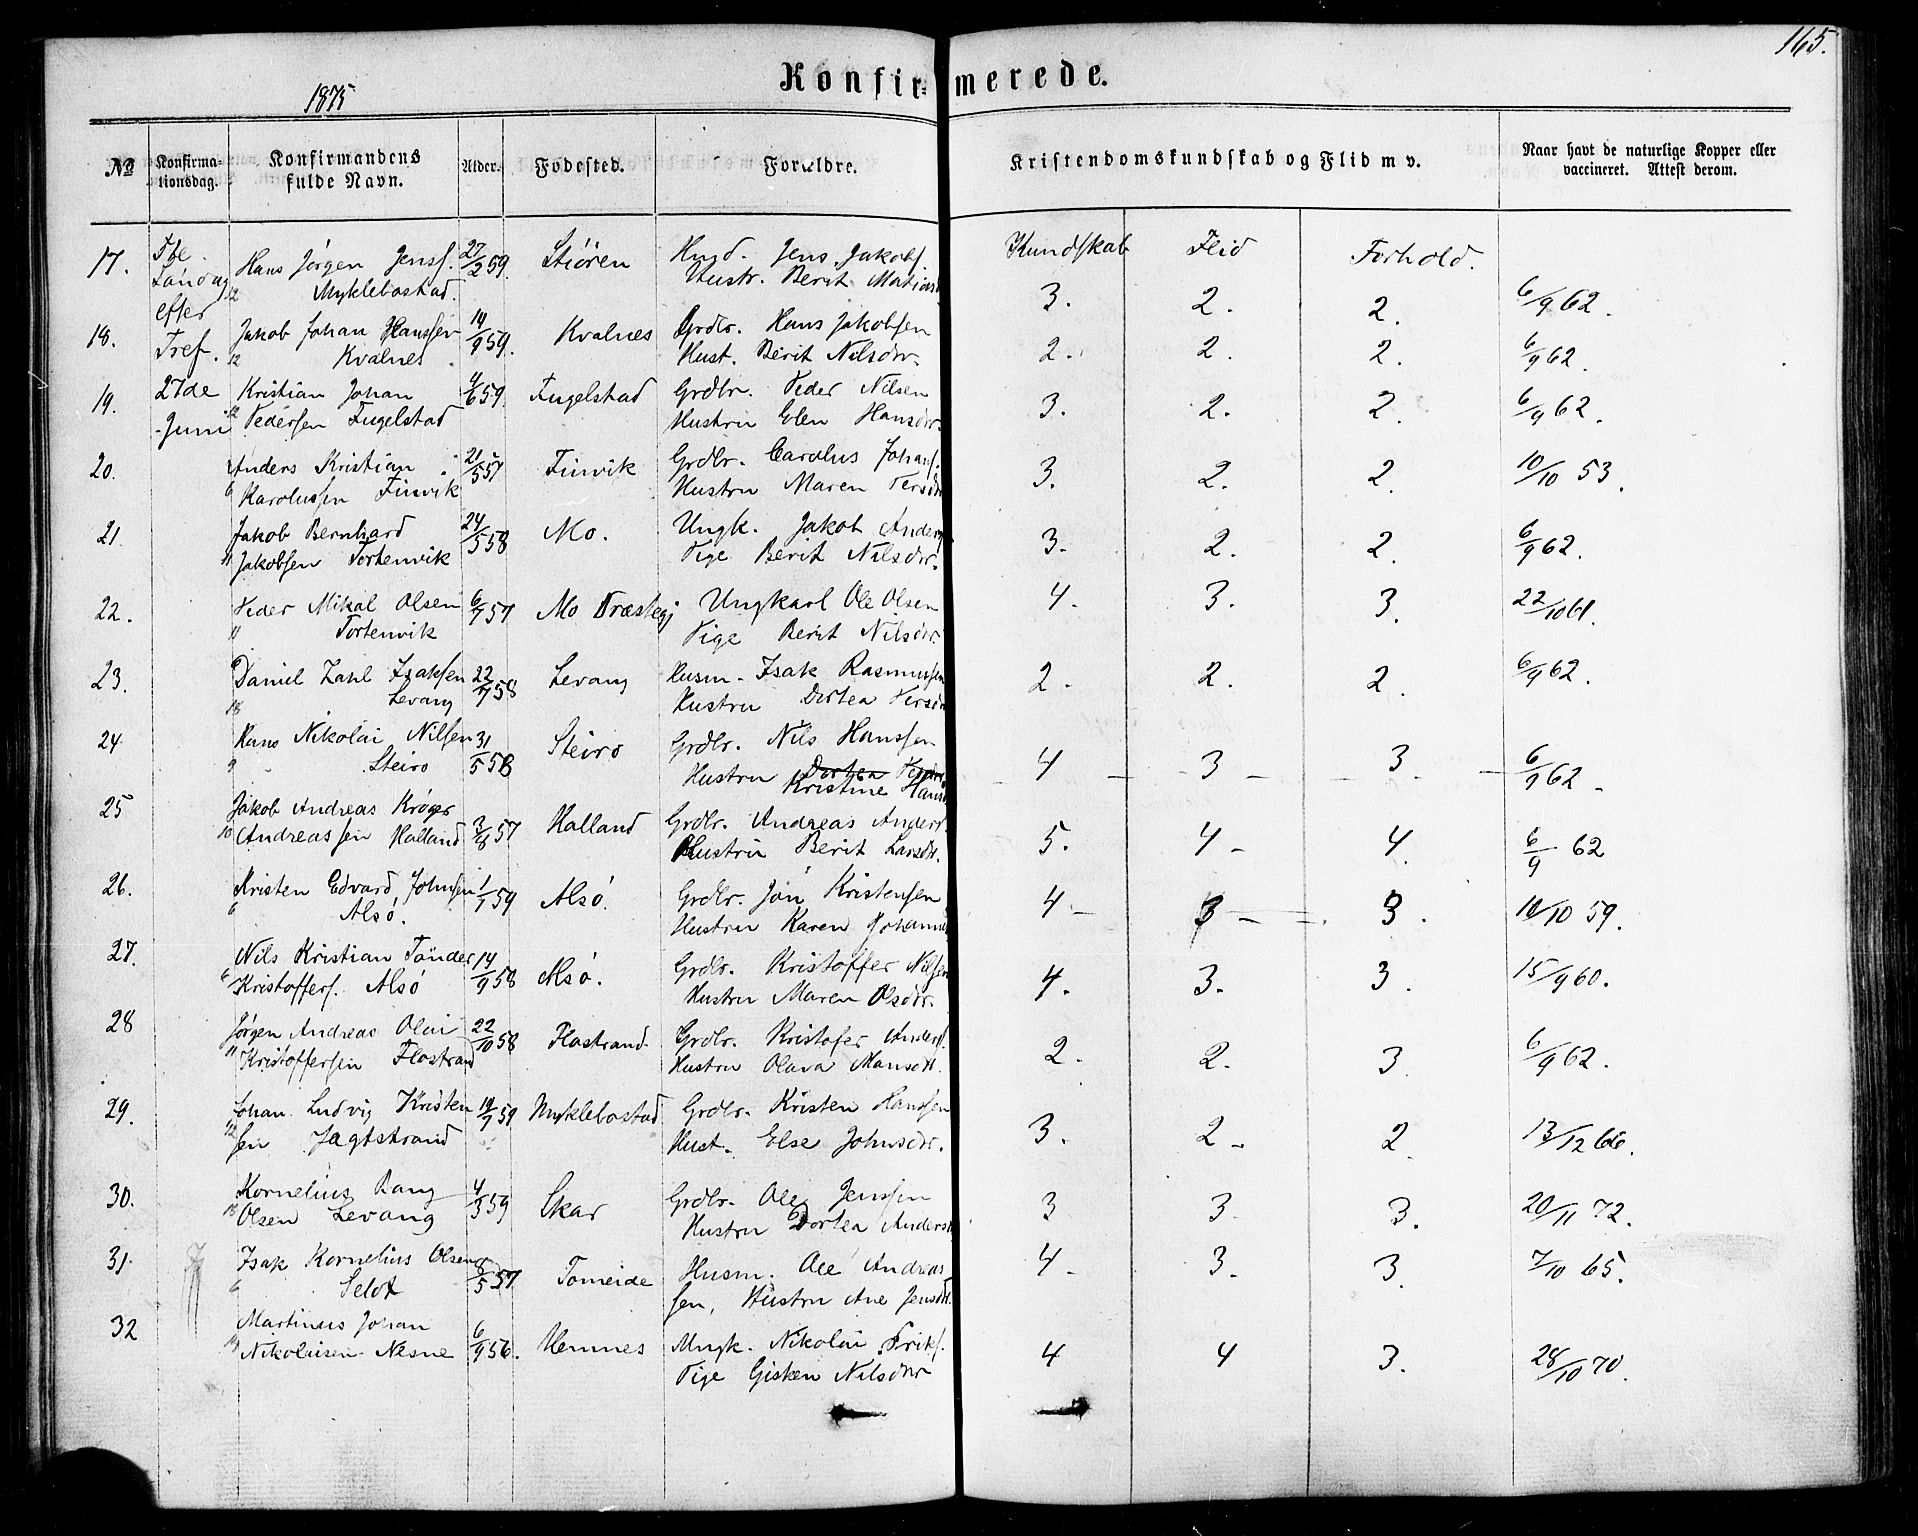 165.
1875
Konfirmerede.
№ Konfirma-tionsdag. Konfirmandens fulde Navn. Alder. Fødested. Forældre. Kristendomskundskab og Flid m v. Naar havt de naturlige Kopper eller vaccineret. Attest derom.
Kundskab Flid Forhold.
17. Hans Jørgen Jens. 27/2 59. Stiören Husd. Jens Jakobs.
12 Myklebostad. Hustr. Berit 3. 2. 2. 6/9 62.
Søndag
efter
Tref.
27de
Juni
18. Jakob Johan Hanssen 14/9 59. Kvalnes Grdbr. Hans Jakobsen
12 Kvalnes. Hust. Berit Nilsdtr. 2. 2. 2. 6/9 62.
19. Kristian Johan 4/6 59. Fugelstad Grdbr. Peder Nilsen
12 Pedersen Fugelstad Hustru Elen Hansdtr. 3. 2. 2. 6/9 62.
20. Anders Kristian 21/5 57 Finvik Grdbr. Carolus Johans.
6 Karolussen Finvik Hustru Maren Persdtr 3. 2. 2. 10/10 53.
21. Jakob Bernhard 24/5 58 Mo. Ungk. Jakob Anders
11 Jakobsen Tortenvik Pige Berit Nilsdtr. 3. 2. 2. 6/9 62.
22. Peder Mikal Olsen 6/7 57 Mo Præstegj Ungkarl Ole Olsen
11 Tortenvik Pige Berit Nilsdtr. 4. 3. 3. 22/10 61.
23. Daniel Zahl Isaksen 22/7 58 Levang Husm. Isak Rasmussen
18 Levang Hustru Dortea Persdtr 2. 2. 2. 6/9 62.
24. Hans Nikolai Nilsen 31/5 58 Steiro Grdbr. Nils Hanssen
9 Steiro Hustru Dortea
Kristine Hans 4 3 3. 6/9 62
25 Jakob Andreas Krøger 3/8 57 Halland Grdbr. Andreas Anders.
10 Andreassen Halland Hustru Berit Larsdtr. 5. 4 4. 6/9 62
26. Kristen Edvard Johnsen 1/1 59 Alsö. Grdbr. Jön Kristensen
6 Alsö. Hustru Karen Johanne 4 3 3. 10/10 59.
27. Nils Kristian Tönder 14/9 58 Alsö. Grdbr. Kristoffer Nilsen
6 Kristoffers. Alsö Hustru Maren Olsdtr. 4. 3. 3. 15/9 60.
28 Jørgen Andreas Olai 22/10 58 Flostrand. Grdbr. Kristofer Anders.
11 Kristoffersen Flostrand Hustru Olava Hansdtt. 2. 2. 3. 6/9 62.
29. Johan Ludvig Kristen 19/7 59 Myklebostad Grdbr. Kristen Hanssen
12 sen Jægtstrand Hust. Else Johnsdtr. 3. 2 2. 13/12 66.
30. Kornelius Rang 4/3 59 Skar Grdbr. Ole Jenssen
18 Olsen Levang Hustru Dortea Andersd 3 3. 3. 20/11 72.
31. Isak Kornelius Olsen 8/5 57 Tomeide Husm. Ole Andreas
6 Selot sen, Hustru Ane Jensdtt. 4. 3. 3. 7/10 65.
32 Martinus Johan 6/9 56. Hemnes Ungk. Nikolai Eriks.
19 Nikolaisen Nesne Pige Gisken Nilsdtr 4 4 3. 28/10 70.